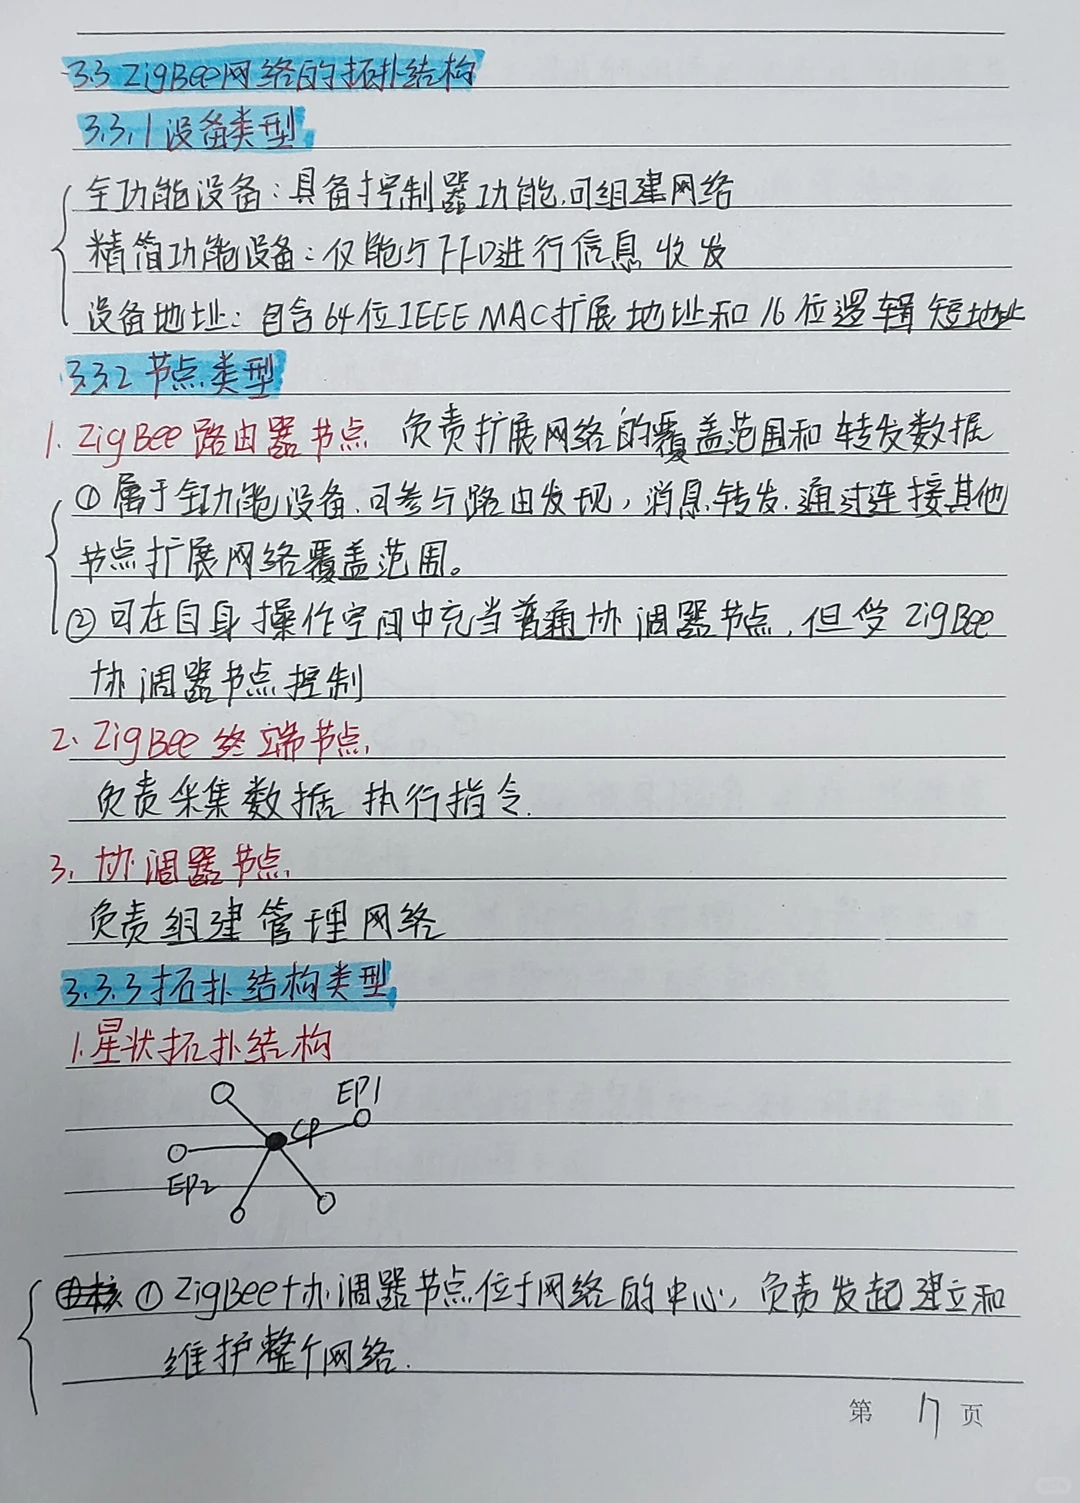 3.3 ZigBee网络的拓扑结构
3.3.1 设备类型
全功能设备：具备控制器功能,可组建网络
精简功能设备：仅能与FFD进行信息收发
设备地址：包含64位IEEE MAC扩展地址和16位逻辑短地址
3.3.2 节点类型
1. ZigBee路由器节点 负责扩展网络的覆盖范围和转发数据
①属于全功能设备、可参与路由发现，消息转发.通过连接其他
节点扩展网络覆盖范围。
②可在自身操作空间中充当普通协调器节点，但受ZigBee
协调器节点控制
2. ZigBee终端节点
负责采集数据 执行指令.
3. 协调器节点
负责组建管理网络
3.3.3拓扑结构类型
1.星状拓扑结构
EP1
CP
EP2
①ZigBee协调器节点位于网络的中心，负责发起建立和
维护整个网络.
第 17 页